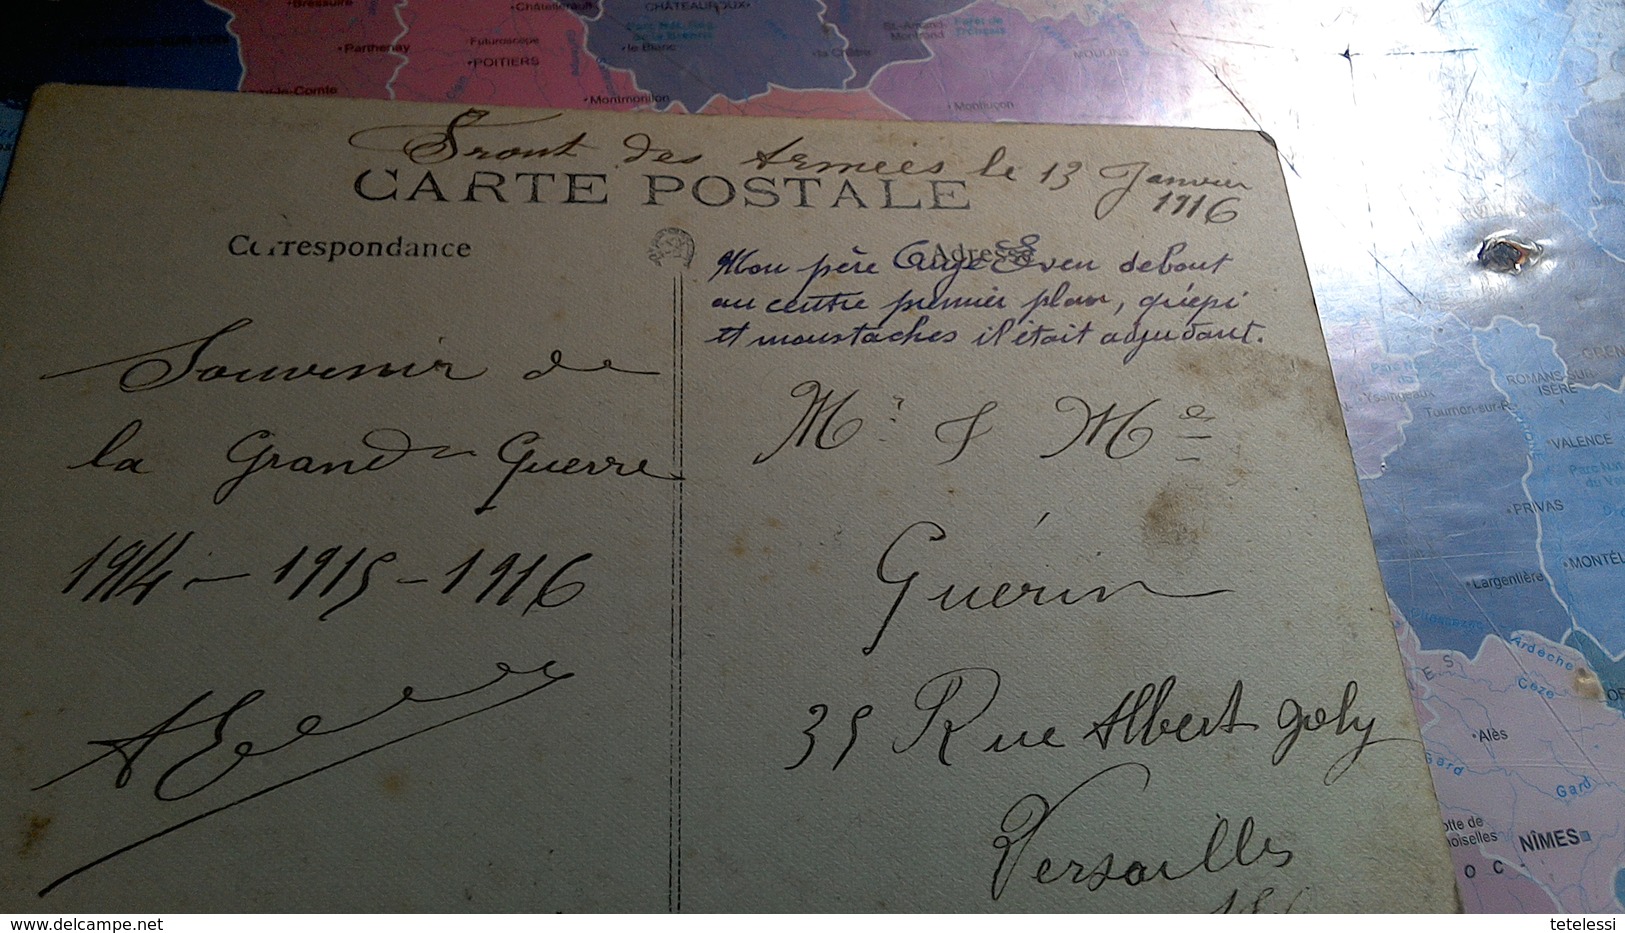 Front des Armées le 13 Janvier
1916
CARTE POSTALE
Correspondance
Adresse
Mon père Ange Even debout
au centre premier plan, quépi
et moustaches il était adjudant.
Souvenir de
la Grande Guerre
1914 - 1915 - 1916
A Even
Mr & Mme
Guérin
35 Rue Albert Joly
Versailles
Bressuire
Parthenay
Châtellerault
Futuroscope
POITIERS
Montmorillon
le Blanc
CHÂTEAUROUX
la Châtre
St.-Amand-
Montrond
MOULINS
Montluçon
ROMANS-SUR-
ISÈRE
Yssingeaux
Tournon-sur-R.
VALENCE
PRIVAS
MONTÉL
Largentière
Ardèche
Cèze
Alès
Gard
Gard
NÎMES
www.delcampe.net
tetelessi